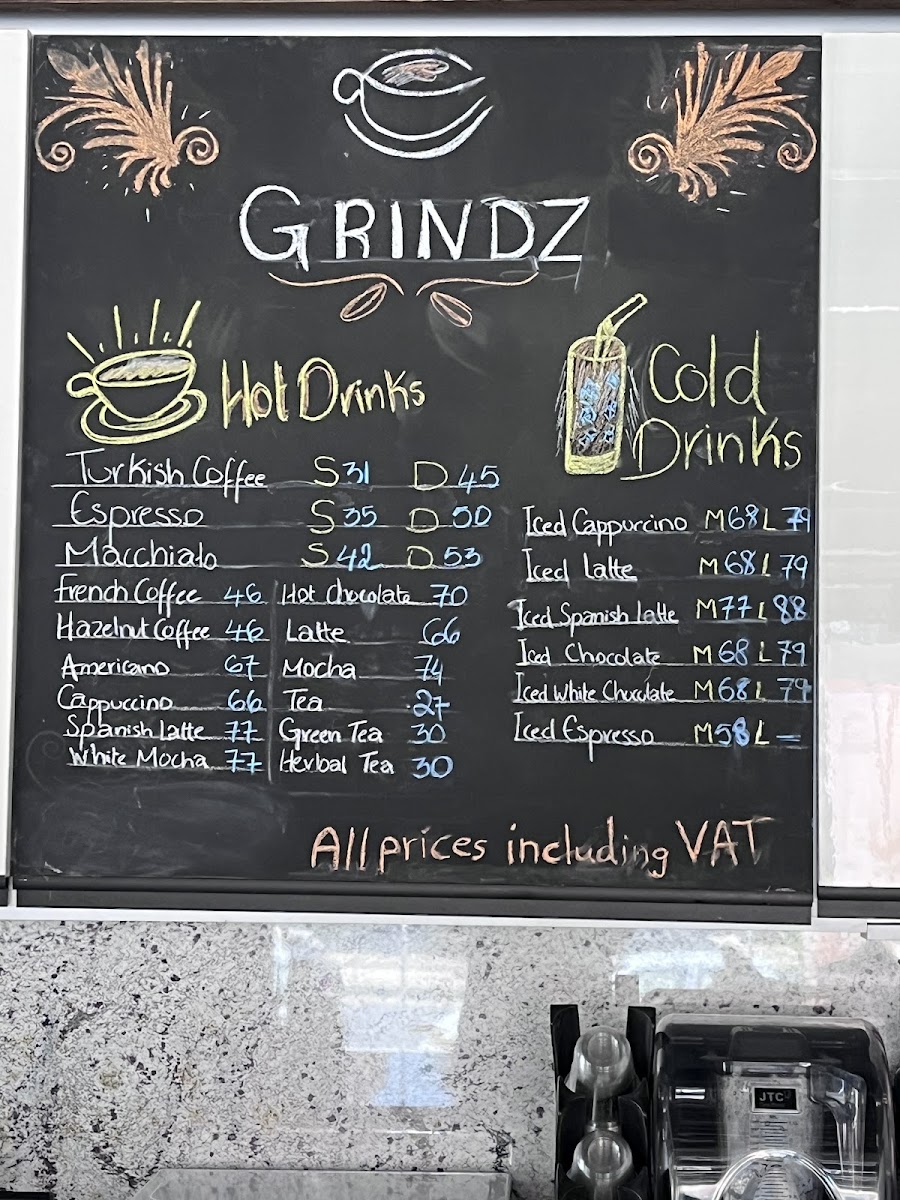 GRINDZ
Hot Drinks
Turkish Coffee S 31 D 45
Espresso S 35 D 50
Macchiato S 42 D 53
French Coffee 46
Hazelnut Coffee 46
Americano 67
Cappuccino 66
Spanish Latte 77
White Mocha 77
Hot chocolate 70
Latte 66
Mocha 74
Tea 27
Green Tea 30
Herbal Tea 30
Cold
Drinks
Iced Cappuccino M 68 L 79
Iced Latte M 68 L 79
Iced Spanish Latte M 77 L 88
Iced Chocolate M 68 L 79
Iced White Chocolate M 68 L 79
Iced Espresso M 58 L —
All prices including VAT
JTC